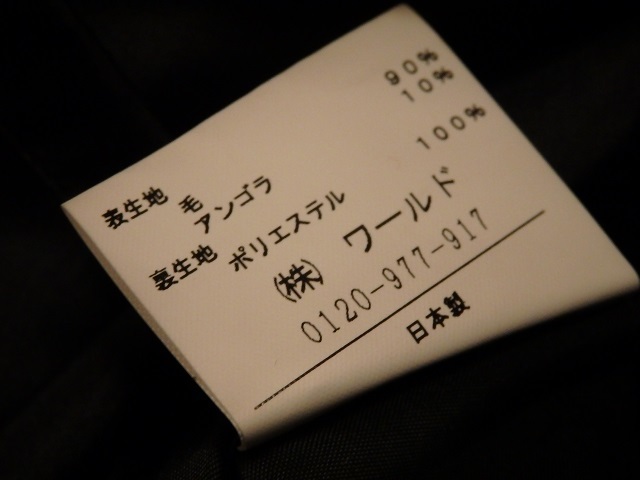 表生地 毛 90%
アンゴラ 10%
裏生地 ポリエステル 100%
(株) ワールド
0120-977-917
日本製